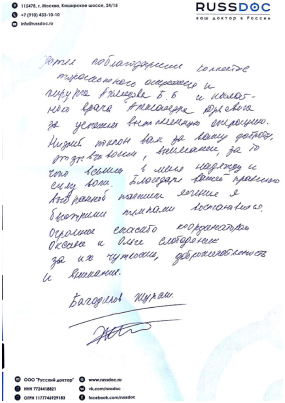 115478, г. Москва, Каширское шоссе, 24/15
+7 (910) 433-10-10
info@russdoc.com
RUSSDOC
ваш доктор в России
Хотим поблагодарить коллектив
хирурга Ахмедова Б. Б и
врача Александра Юрьевича
за успешно выполненную операцию.
Низкий поклон вам за вашу доброту,
отзывчивость, внимание, за то
что вселили в меня надежду и
силу воли. Благодаря вашей правильно
выбранной тактики лечения я
быстрыми темпами восстановился.
Огромное спасибо координаторам
Оксане и Ольге
за их чуткость, доброжелательность
и внимание.
ООО "Русский доктор"
ИНН 7724418821
ОГРН 1177746929183
www.russdoc.ru
vk.com/russdoc
facebook.com/russdoc